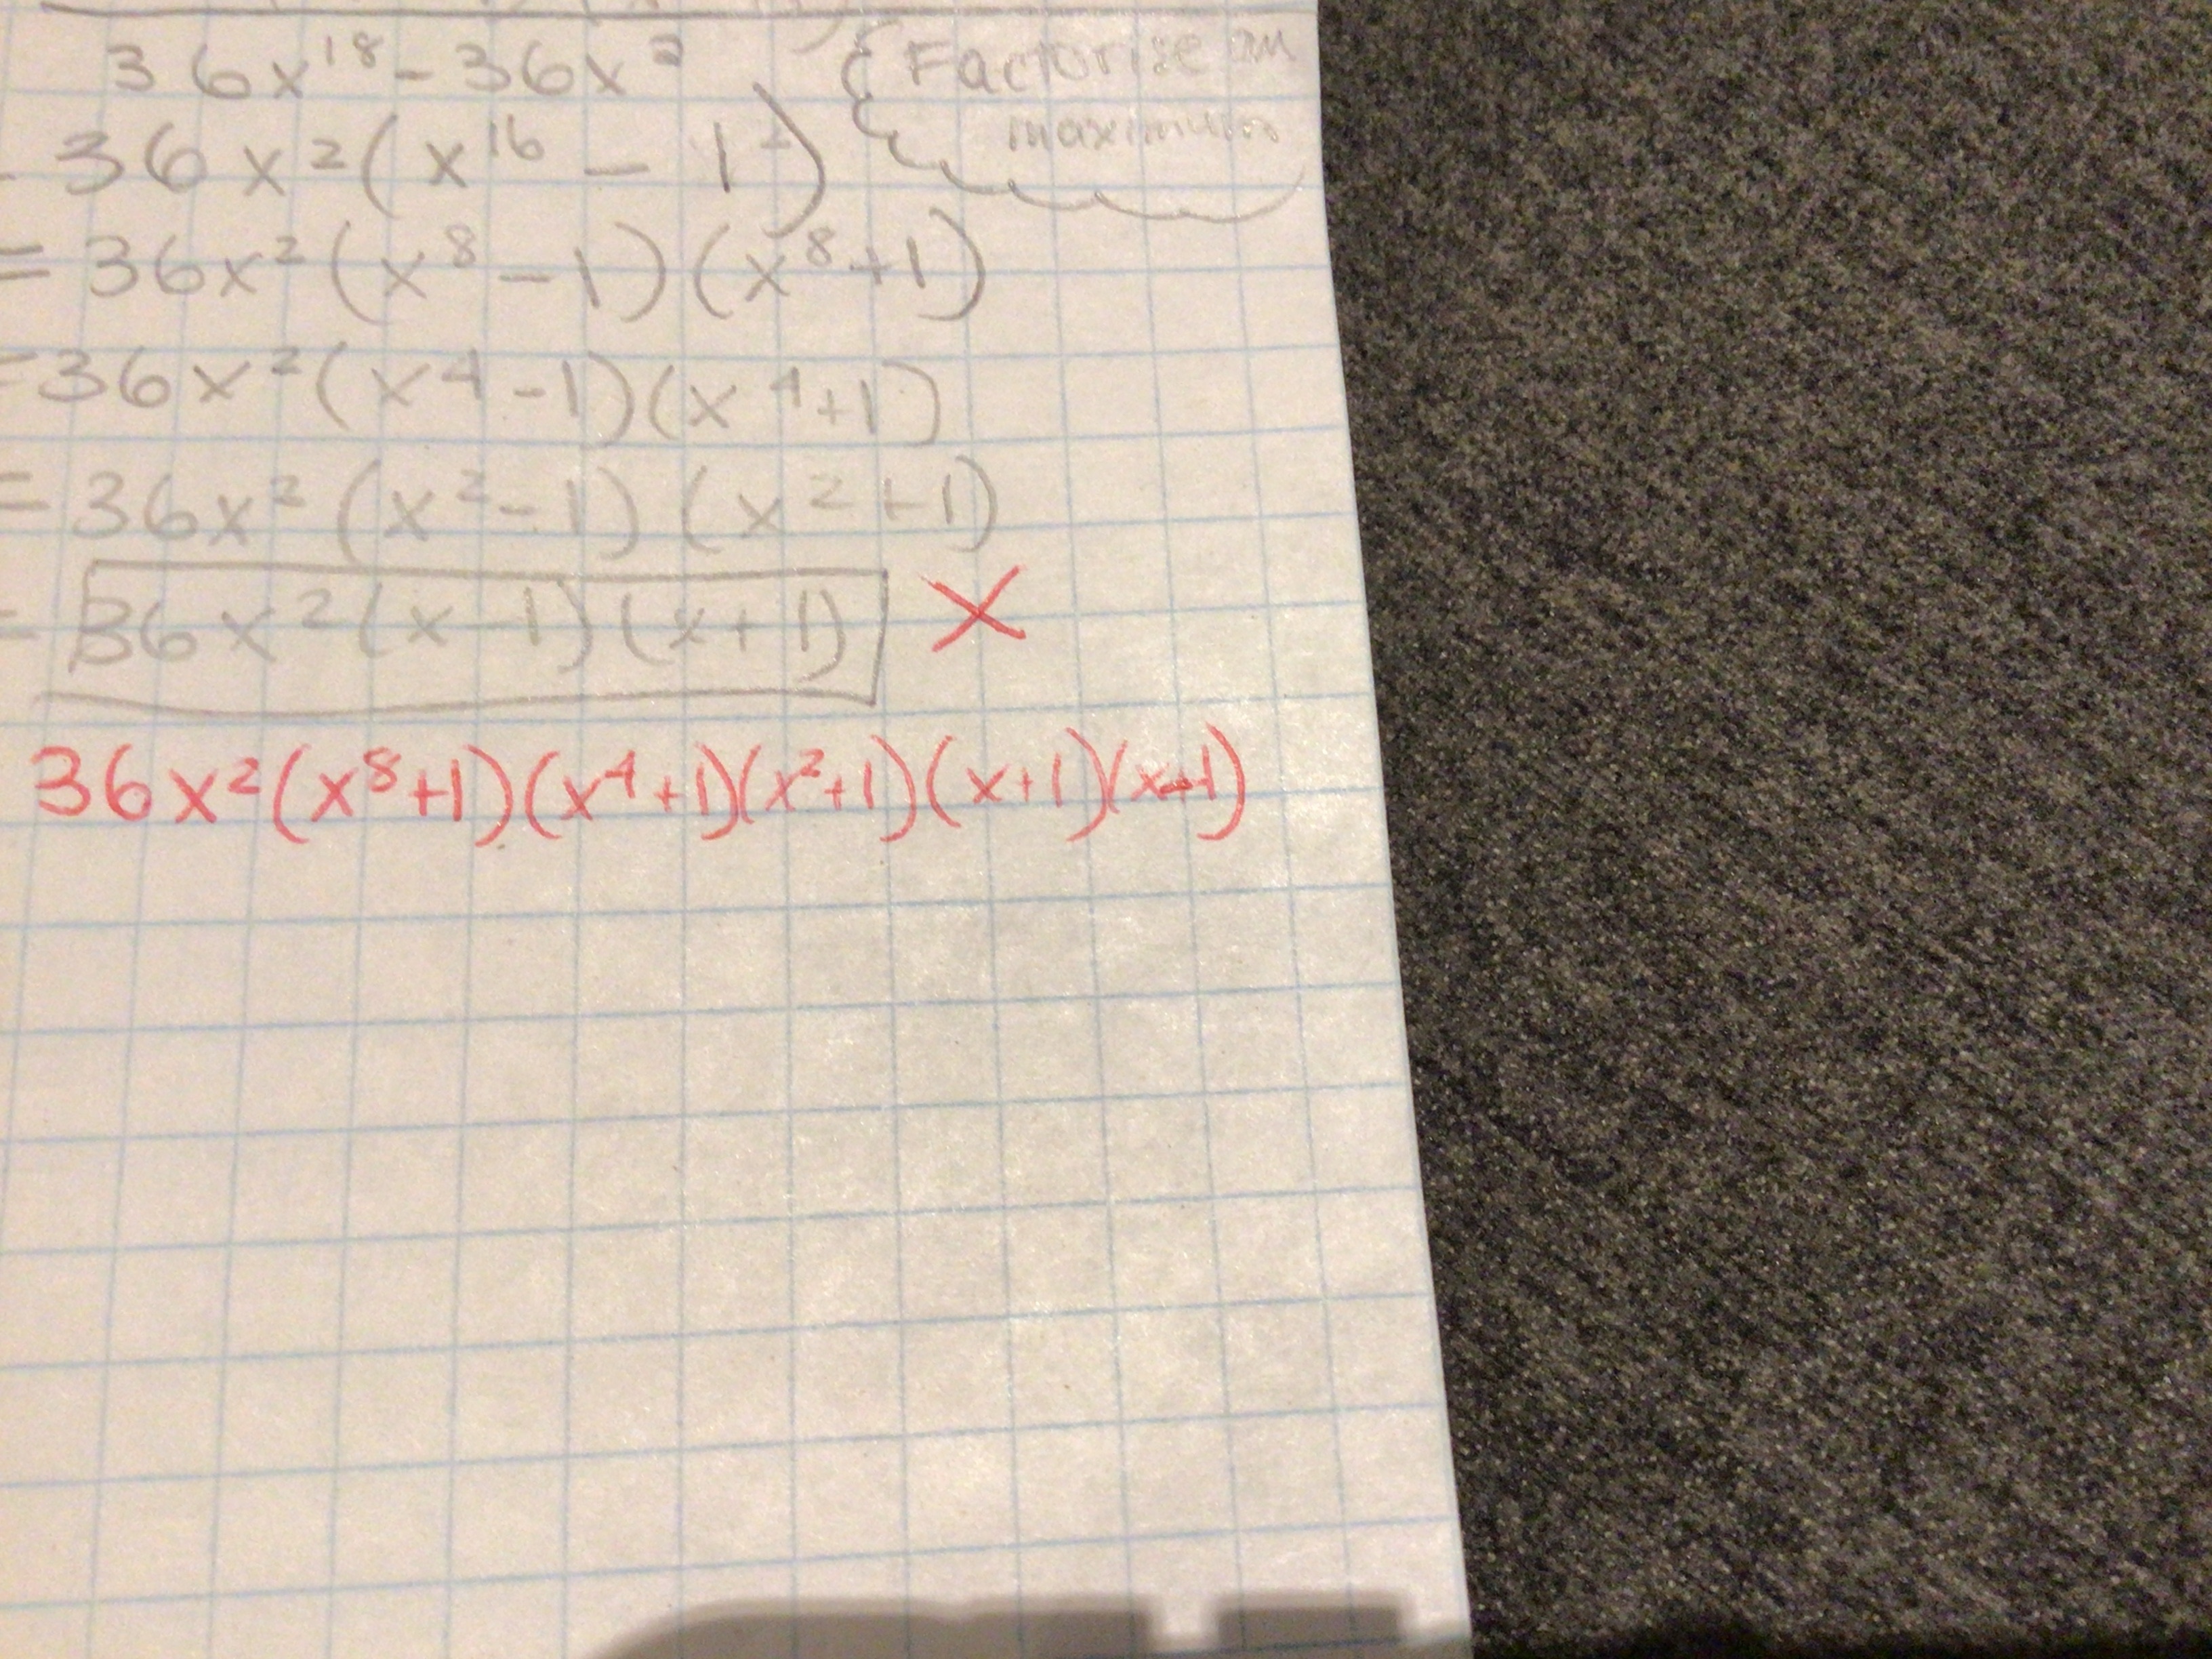 36x¹⁸ - 36x²
Factorise au
maximum
= 36x²(x¹⁶ - 1)
= 36x²(x⁸ - 1)(x⁸ + 1)
= 36x²(x⁴ - 1)(x⁴ + 1)
= 36x²(x² - 1)(x² + 1)
= 36x²(x - 1)(x + 1) X
36x²(x⁸+1)(x⁴+1)(x²+1)(x+1)(x-1)